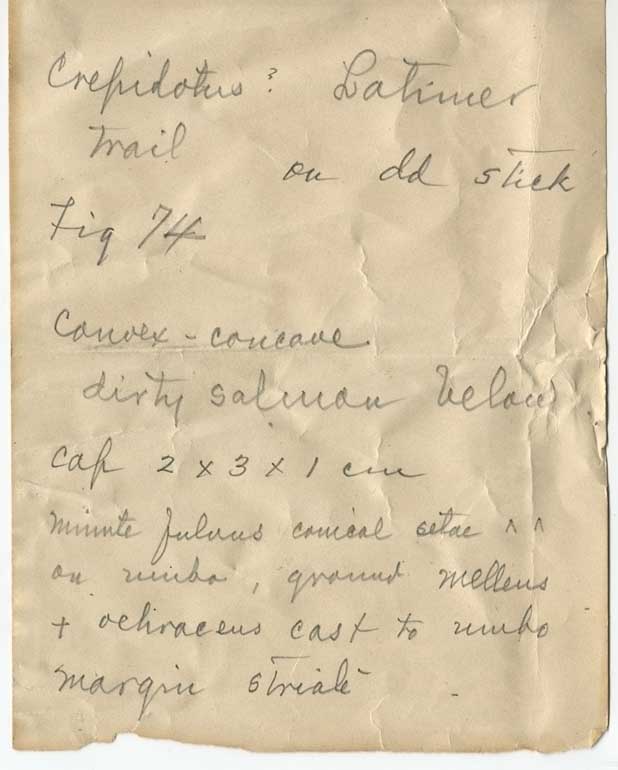 Crepidotus? Latimer
Trail
on dd stick
Fig 74
Convex - concave
dirty salmon below
cap 2 x 3 x 1 cm
minute fulvous conical setae ^ ^
on umbo, ground melleus
+ ochraceus cast to umbo
margin striate